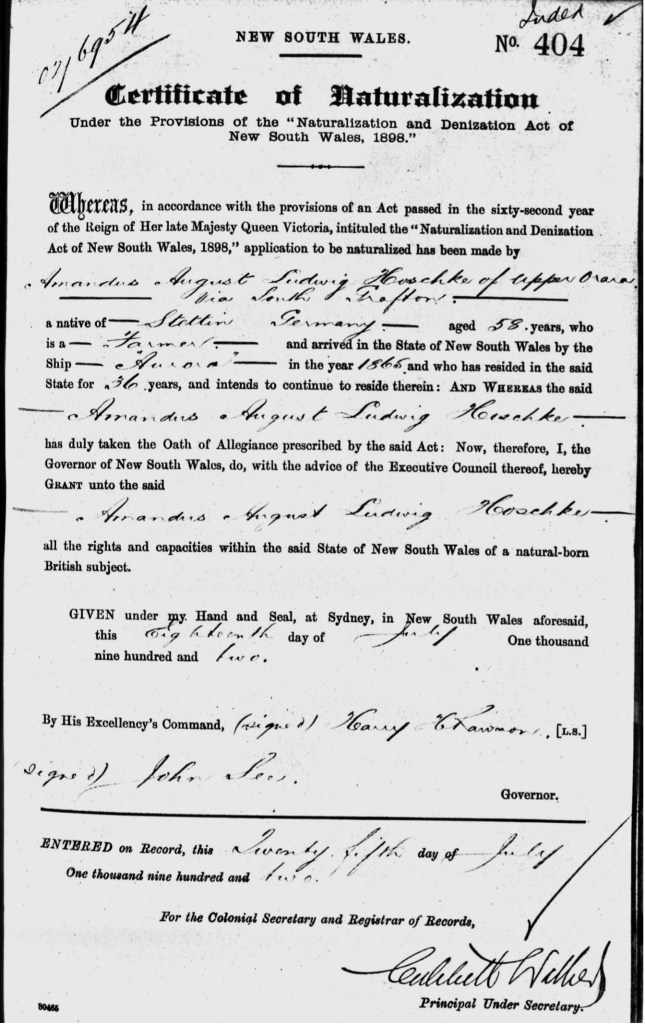 Index
02/6954
NEW SOUTH WALES.
No. 404
Certificate of Naturalization
Under the Provisions of the "Naturalization and Denization Act of
New South Wales, 1898."
Whereas, in accordance with the provisions of an Act passed in the sixty-second year
of the Reign of Her late Majesty Queen Victoria, intituled the "Naturalization and Denization
Act of New South Wales, 1898," application to be naturalized has been made by
Amandus August Ludwig Hoschke of Upper Orara
via South Grafton.
a native of Stettin Germany aged 58 years, who
is a Farmer and arrived in the State of New South Wales by the
Ship "Aurora" in the year 1865 and who has resided in the said
State for 36 years, and intends to continue to reside therein: AND WHEREAS the said
Amandus August Ludwig Hoschke
has duly taken the Oath of Allegiance prescribed by the said Act: Now, therefore, I, the
Governor of New South Wales, do, with the advice of the Executive Council thereof, hereby
GRANT unto the said
Amandus August Ludwig Hoschke
all the rights and capacities within the said State of New South Wales of a natural-born
British subject.
GIVEN under my Hand and Seal, at Sydney, in New South Wales aforesaid,
this Eighteenth day of July One thousand
nine hundred and two.
By His Excellency's Command, (signed) Harry H Rawson. [L.S.]
signed) John See.
Governor.
ENTERED on Record, this Twenty fifth day of July
One thousand nine hundred and two.
For the Colonial Secretary and Registrar of Records,
Principal Under Secretary.
50465